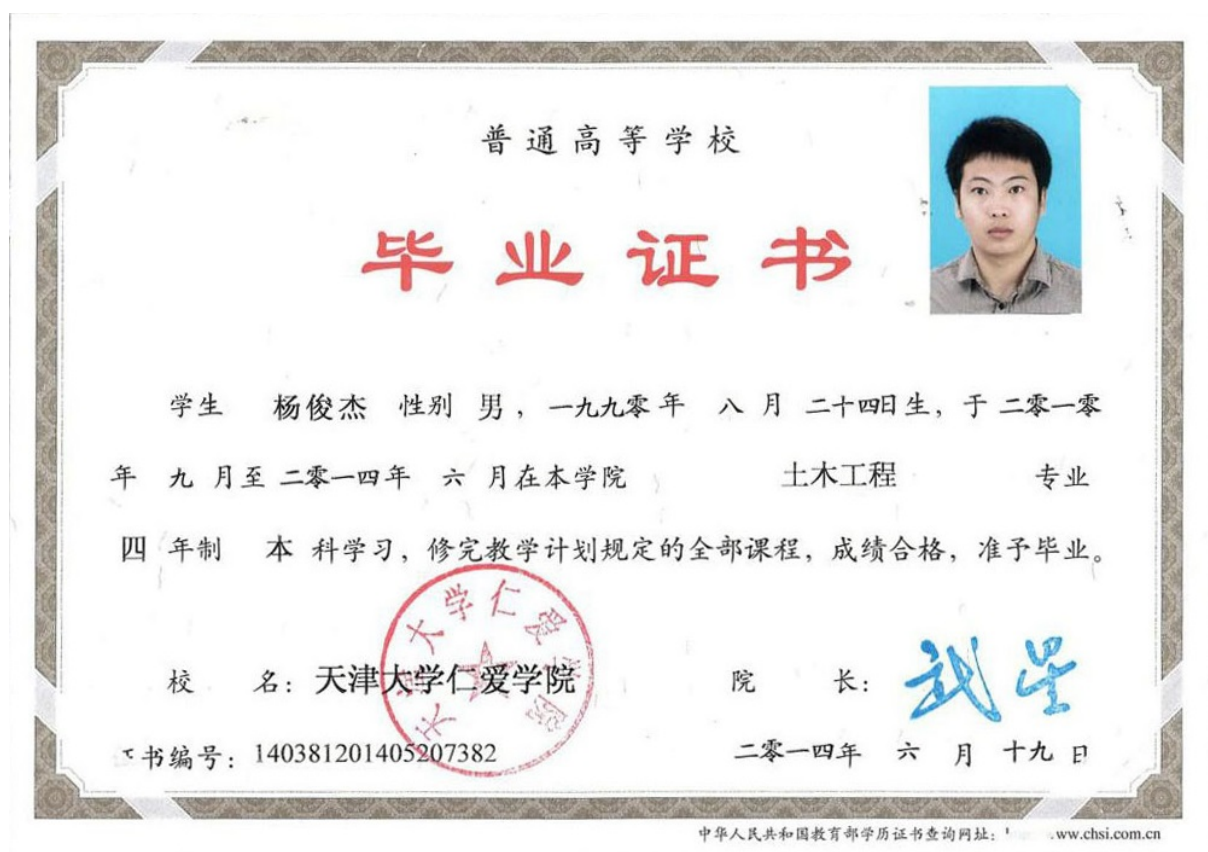 普通高等学校
毕业证书
学生 杨俊杰 性别 男，一九九零年 八 月 二十四日生，于 二零一零
年 九 月至 二零一四年 六 月在本学院 土木工程 专业
四 年制 本 科学习，修完教学计划规定的全部课程，成绩合格，准予毕业。
天津大学仁爱学院
校 名：天津大学仁爱学院 院 长：武星
书编号：140381201405207382 二零一四年 六 月 十九 日
中华人民共和国教育部学历证书查询网址： .ww.chsi.com.cn